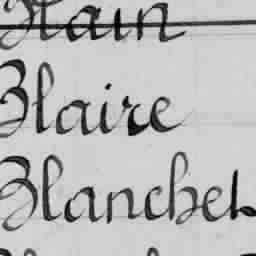 Blain
Blaire
Blanchet